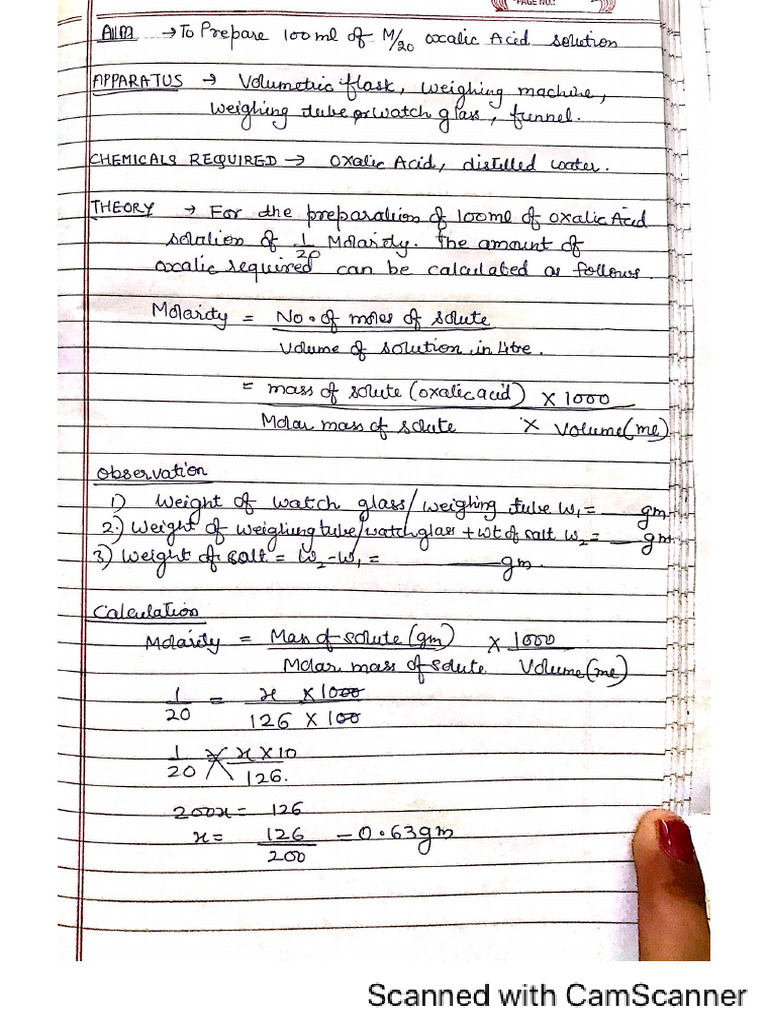 PAGE NO.:
AIM → To Prepare 100 ml of M/20 oxalic Acid solution
APPARATUS → Volumetric flask, weighing machine,
weighing tube or watch glass, funnel.
CHEMICALS REQUIRED → Oxalic Acid, distilled water.
THEORY → For the preparation of 100ml of oxalic Acid
solution of 1/20 Molarity. The amount of
oxalic required can be calculated as follows.
Molarity = No. of moles of solute
Volume of solution in litre.
= mass of solute (oxalic acid) × 1000
Molar mass of solute × Volume(ml)
Observation
1) Weight of watch glass/weighing tube W₁ = ___ gm
2.) Weight of weighing tube/watch glass + wt of salt W₂ = __ gm
3) Weight of salt = W₂-W₁ = ______ gm.
Calculation
Molarity = Mass of solute (gm) × 1000
Molar mass of solute Volume(ml)
1/20 = x × 1000
126 × 100
1/20 x × 10
126.
200x = 126
x = 126/200 = 0.63gm
Scanned with CamScanner